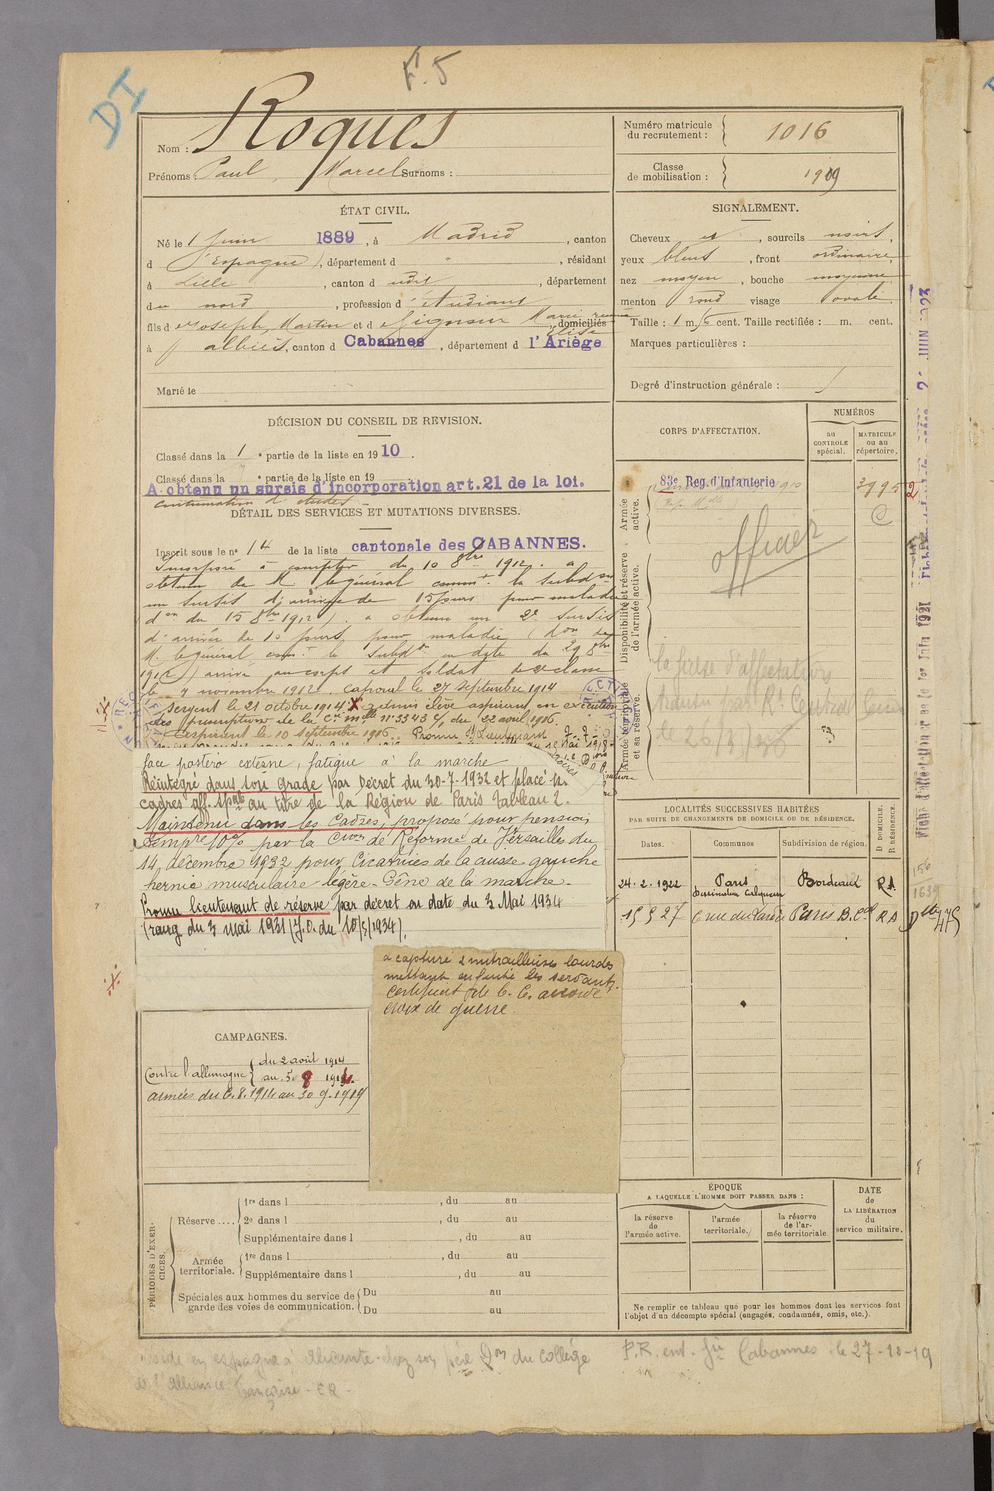 F. 5
DI
Nom : Roques
Prénoms : Paul, Marcel Surnoms :
Numéro matricule du recrutement : 1016
Classe de mobilisation : 1909
ÉTAT CIVIL.
Né le 1 Juin 1889, à Madrid, canton
d (Espagne), département d " , résidant
à Lille, canton d udit, département
du nord, profession d'étudiant
fils de Joseph, Martin et de Marie domiciliés
à albiès, canton d Cabannes, département d l'Ariège
Marié le
SIGNALEMENT.
Cheveux et , sourcils noirs,
yeux bleus, front ordinaire,
nez moyen, bouche moyenne
menton rond visage ovale.
Taille : 1 m. cent. Taille rectifiée : m. cent.
Marques particulières :
Degré d'instruction générale :
DÉCISION DU CONSEIL DE REVISION.
Classé dans la 1 e partie de la liste en 1910.
Classé dans la e partie de la liste en 19
A obtenu un sursis d'incorporation art. 21 de la loi.
continuation d'études
DÉTAIL DES SERVICES ET MUTATIONS DIVERSES.
Inscrit sous le n° 14 de la liste cantonale des CABANNES.
Incorporé à compter du 10 8bre 1912. a
obtenu de M. le général commt la subdon
un sursis d'arrivée de 15 jours pour maladie
(don du 15 8bre 1912). a obtenu un 2e sursis
d'arrivée de 10 jours pour maladie (don de
M. le général comt la subdon en date du 29 8bre
1912) arrivé au corps et soldat de 2e classe
le 7 novembre 1912. Caporal le 27 Septembre 1914
Sergent le 21 octobre 1914. X admis élève aspirant en exécution
des prescriptions de la Cre mlle n° 3343 du 22 avril 1916.
aspirant le 10 Septembre 1916. Promu
face postéro externe, fatigue à la marche
Réintégré dans son grade par Décret du 30-7-1932 et placé
cadres aff. spale au titre de la Région de Paris Tableau 2.
Maintenu dans les cadres, proposé pour pension
tempre 10% par la Cion de Réforme de Versailles du
14 décembre 1932 pour Cicatrices de la cuisse gauche
hernie musculaire légère. Gêne de la marche.
Promu lieutenant de réserve par décret en date du 3 Mai 1934
(rang du 3 mai 1931 (J.O. du 10/5/1934).
a capturé 2 mitrailleuses lourdes
mettant en fuite les servants.
Croix de guerre.
CORPS D'AFFECTATION.
NUMÉROS
au CONTROLE spécial.
MATRICULE ou au répertoire.
Armée active.
83e Reg. d'Infanterie
3995
2
C
Disponibilité et réserve de l'armée active.
officier
Armée territoriale et sa réserve.
la fiche d'affectation
LOCALITÉS SUCCESSIVES HABITÉES
PAR SUITE DE CHANGEMENTS DE DOMICILE OU DE RÉSIDENCE.
Dates. Communes Subdivision de région. D DOMICILE. R RÉSIDENCE.
24.2.1922 Paris Bordeaux RA
6 rue du Paris B. Cal RA
475
CAMPAGNES.
Contre l'allemagne { du 2 août 1914
au 5 8 1914.
armées du 6.8.1914 au 30 9.1919
PÉRIODES D'EXERCICES.
Réserve .... 1re dans l , du au
2e dans l , du au
Supplémentaire dans l , du au
Armée territoriale. 1re dans l , du au
Supplémentaire dans l , du au
Spéciales aux hommes du service de garde des voies de communication. Du au
Du au
ÉPOQUE
A LAQUELLE L'HOMME DOIT PASSER DANS :
la réserve de l'armée active.
l'armée territoriale.
la réserve de l'armée territoriale.
DATE de LA LIBÉRATION du service militaire.
Ne remplir ce tableau que pour les hommes dont les services font
l'objet d'un décompte spécial (engagés, condamnés, omis, etc.).
réside en espagne à Alicante chez son père Don du collège
de l'alliance française - CR.
P.R. Cabannes le 27-10-19